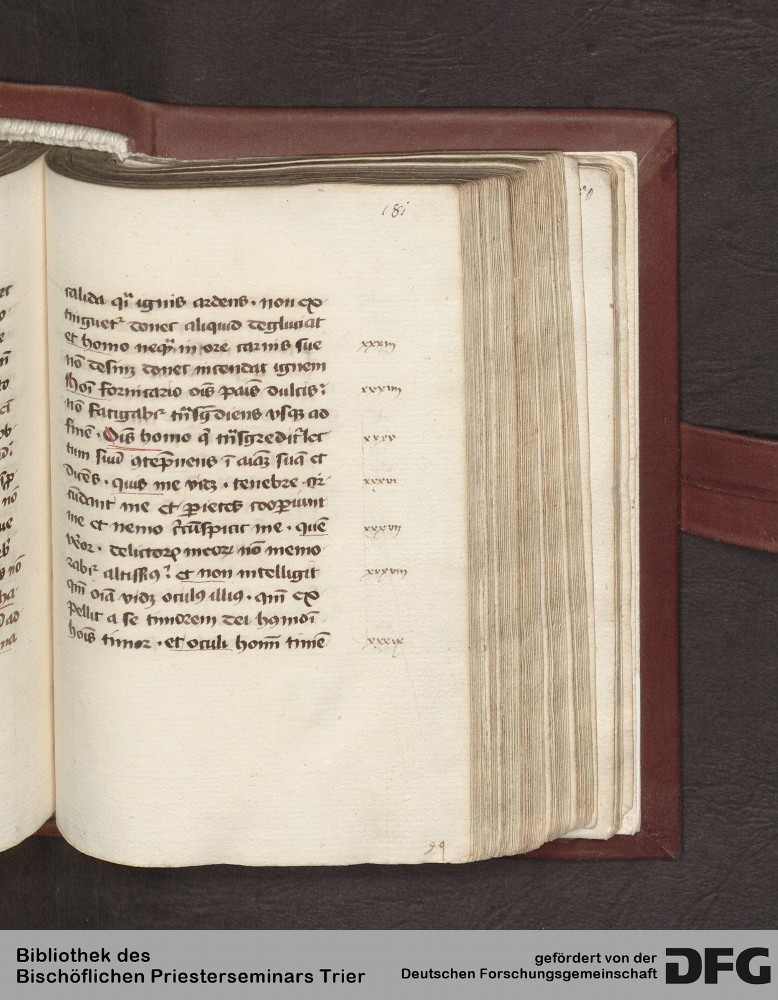 181
calida q̄i ignis ardens · non ex
tinguet᷑ donec aliquid deglutiat
et homo neq̄ᵃ in ore carnis sue
xxxiii
nō desin; donec incendat ignem
hoī fornicario oīs pais dulcis:
xxxiiii
nō fatigabr̄ trāsgdiens vsq̄ ad
finē · Oīs homo q̄ trāsgredit᷑ lec
xxxv
tum suū ꝯtēpnens ī aīaꝫ suā et
dicēs · quis me videt · tenebre cir
xxxvi
cūdant me et ꝑietes cooꝑiunt
me et nemo c̄cūspicit me · quē
xxxvii
v̄eor · delictoꝝ meoꝝ nō memo
rabr̄ altissīꝰ: et non intelligit
xxxviii
qm̄ oīa videt oculꝰ illiꝰ · qm̄ ex
pellit a se timorem dei hꝰmōi
hoīs timor · et oculi homī timē
xxxix
Bibliothek des
Bischöflichen Priesterseminars Trier
gefördert von der
Deutschen Forschungsgemeinschaft
DFG